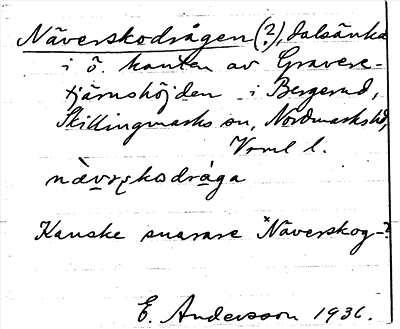 Näverskodrågen (?), dalsänka
i ö. kanten av Gravere-
tjärnshöjden i Bergerud,
Skillingmarks sn, Nordmarks hd,
Vrml l.
nævʀskodråga
Kanske snarare *Näverskog-?
E. Andersson 1936.